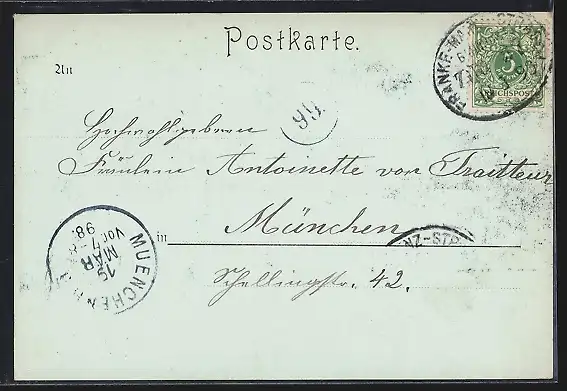 Postkarte.
An
5
REICHSPOST
99.
Hochwohlgeboren
Fräulein Antoinette von Traitteur
in München
Schellingstr. 42.
MUENCHEN
15
MÄR
Vor. 7-8
98
NZ-STR